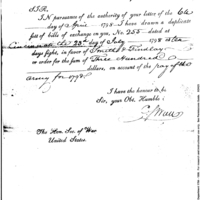 SIR,
IN pursuance of the authority of your letter of the 6th
day of April 1798 I have drawn a duplicate
set of bills of exchange on you, No. 255 dated at
Cincinnati the 23d day of July 1798 at ten
days sight, in favor of Smith & Findlay
or order for the sum of Three Hundred
dollars, on account of the pay of the
army for 1798
I have the honour to be
Sir, your Obt. Humble
The Hon. Sec. of War
United States